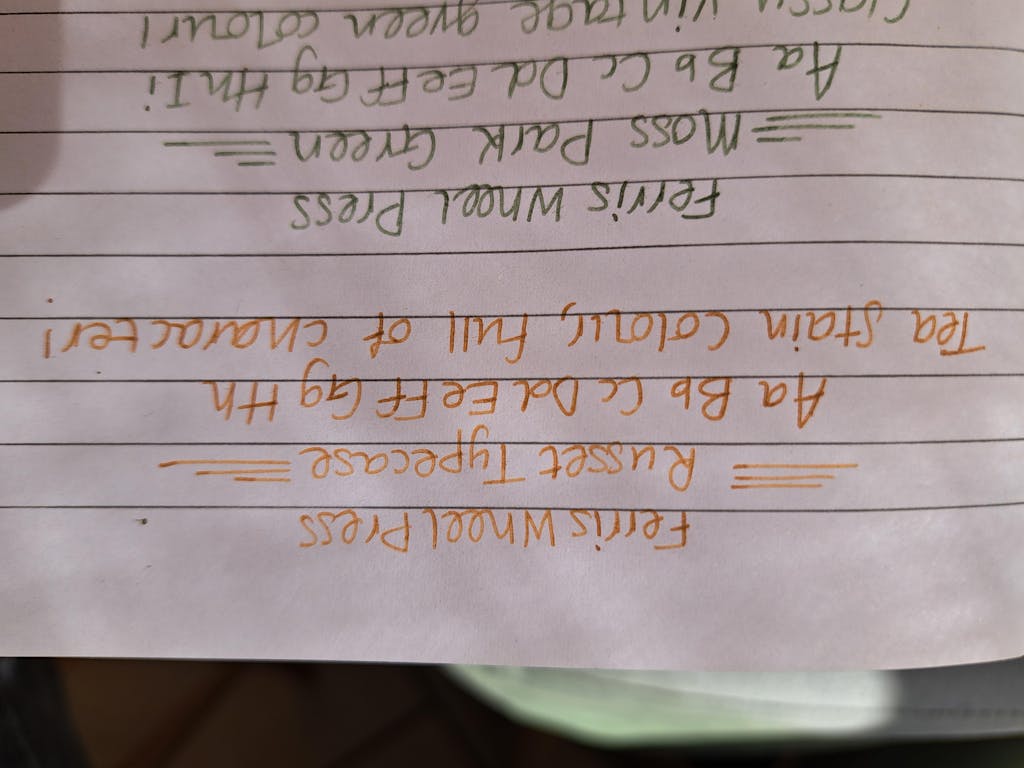 Ferris Wheel Press
Russet Typecase
Aa Bb Cc Dd Ee Ff Gg Hh
Tea Stain Colour, full of character!
Ferris Wheel Press
Moss Park Green
Aa Bb Cc Dd Ee Ff Gg Hh Ii
Classy vintage green colour!